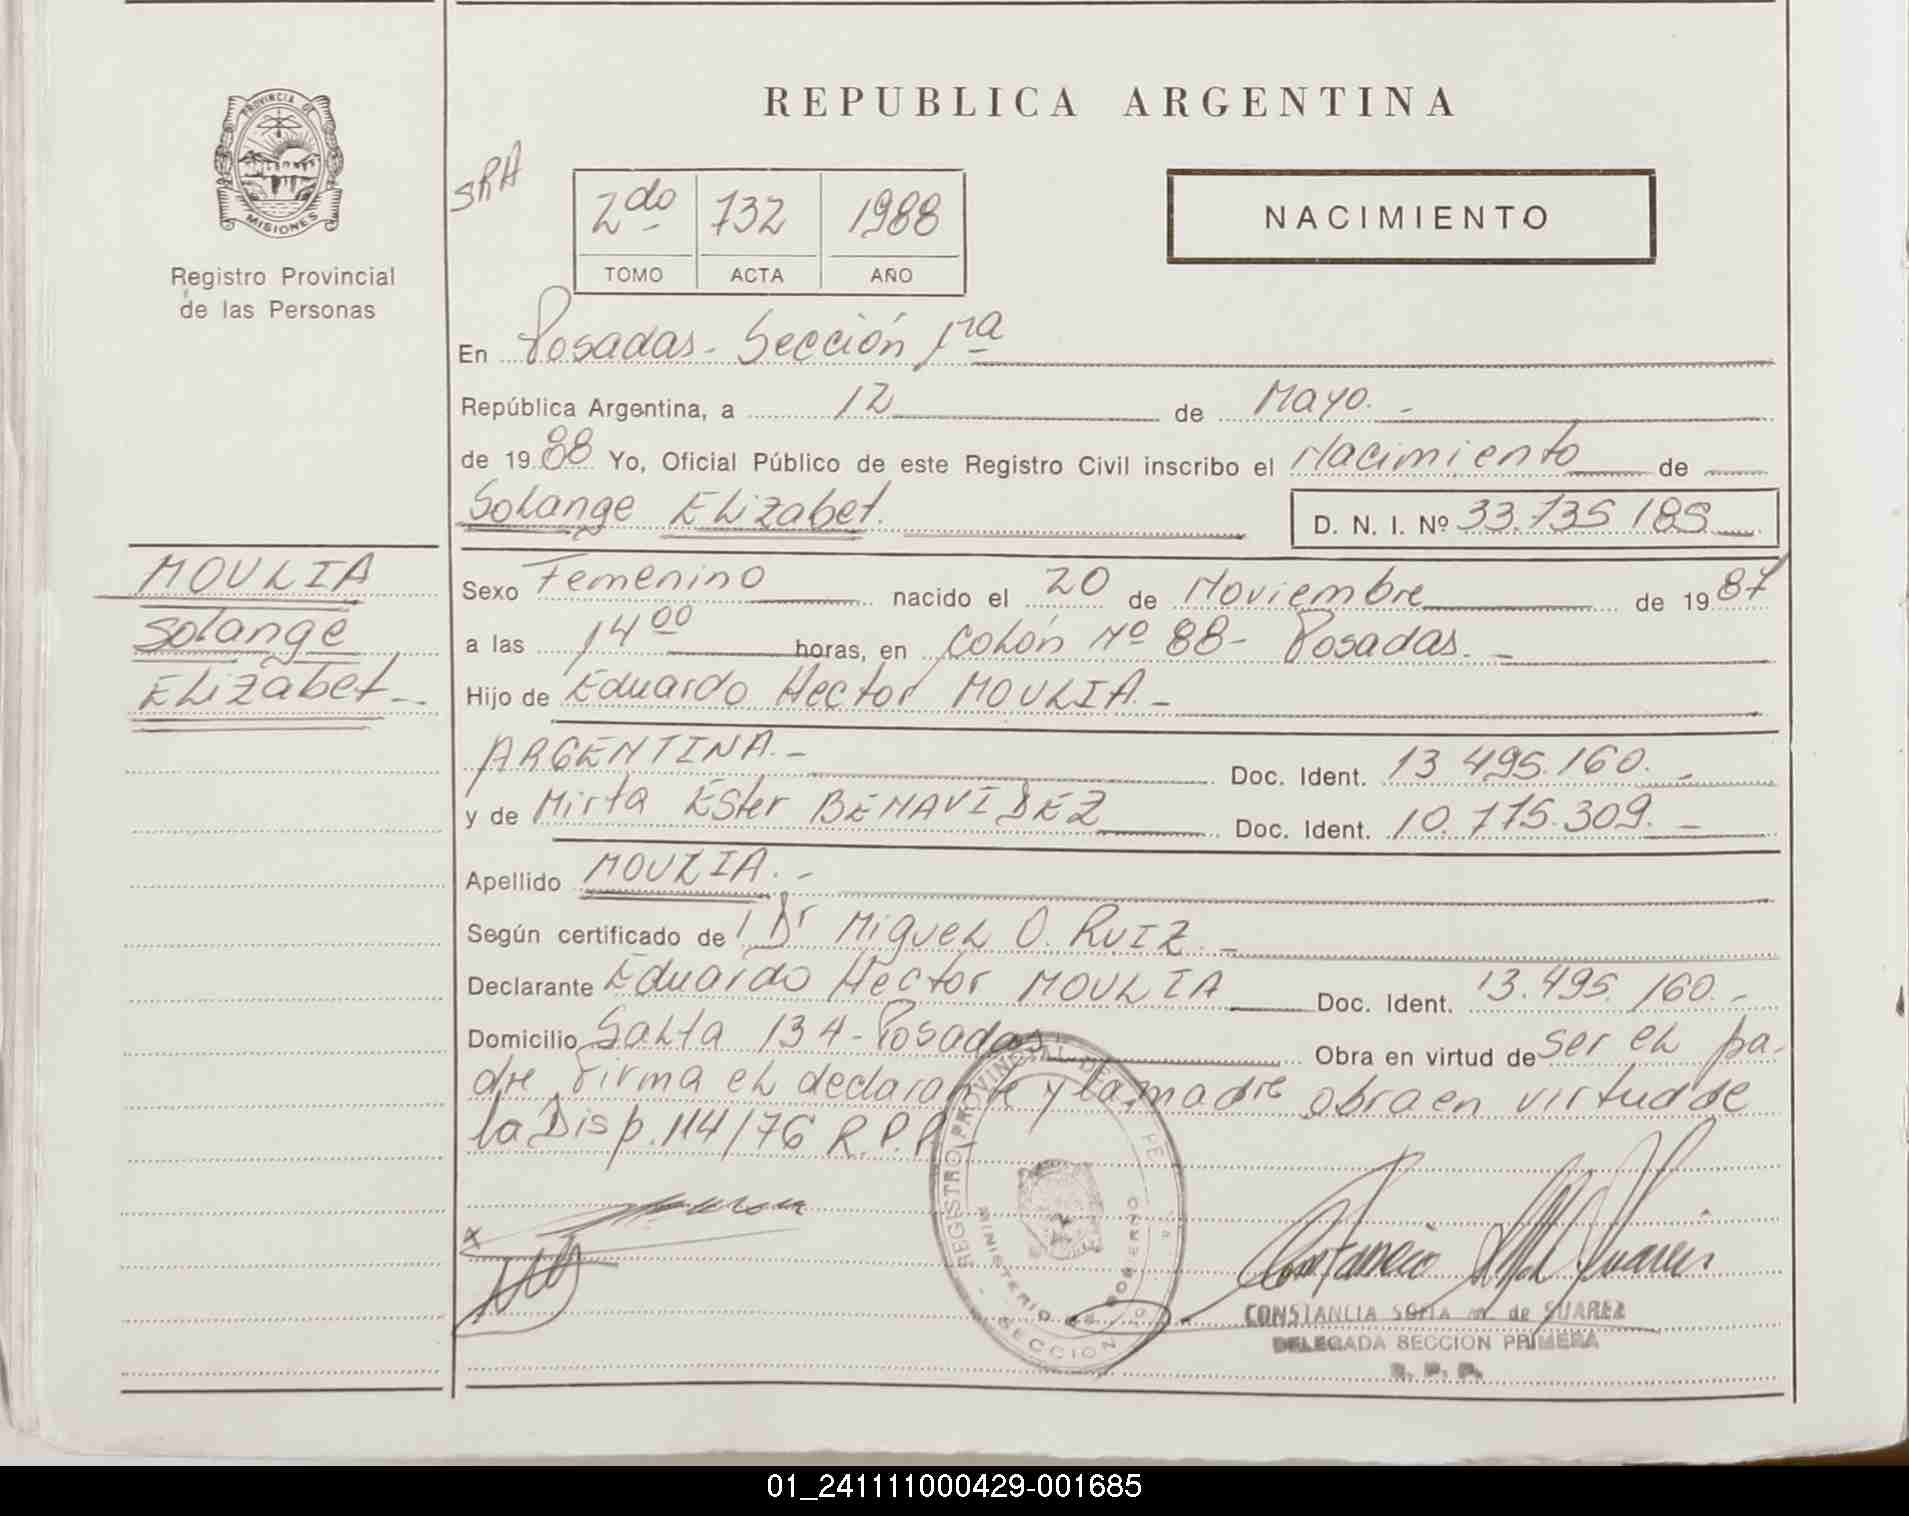 REPUBLICA ARGENTINA
PROVINCIA DE
MISIONES
Registro Provincial
de las Personas
SRA
2do 732 1988
TOMO ACTA AÑO
NACIMIENTO
En Posadas - Sección 1ra
República Argentina, a 12 de Mayo. -
de 1988 Yo, Oficial Público de este Registro Civil inscribo el Nacimiento de
Solange Elizabet. D. N. I. Nº 33.735.185
MOULIA
Solange
Elizabet -
Sexo Femenino nacido el 20 de Noviembre de 1987
a las 14 00 horas, en Colón Nº 88 - Posadas. -
Hijo de Eduardo Hector MOULIA. -
ARGENTINA. - Doc. Ident. 13.495.160. -
y de Mirta Ester BENAVIDEZ Doc. Ident. 10.775.309. -
Apellido MOULIA. -
Según certificado de Dr Miguel O. RUIZ. -
Declarante Eduardo Hector MOULIA Doc. Ident. 13.495.160. -
Domicilio Salta 134 - Posadas Obra en virtud de ser el pa-
dre firma el declarante y la madre obra en virtud de
la Disp. 114/76 R.P.P. -
REGISTRO PROVINCIAL DE
MINISTERIO DE GOBIERNO
SECCION
CONSTANCIA SOFIA M. de SUAREZ
DELEGADA SECCION PRIMERA
R. P. P.
01_241111000429-001685